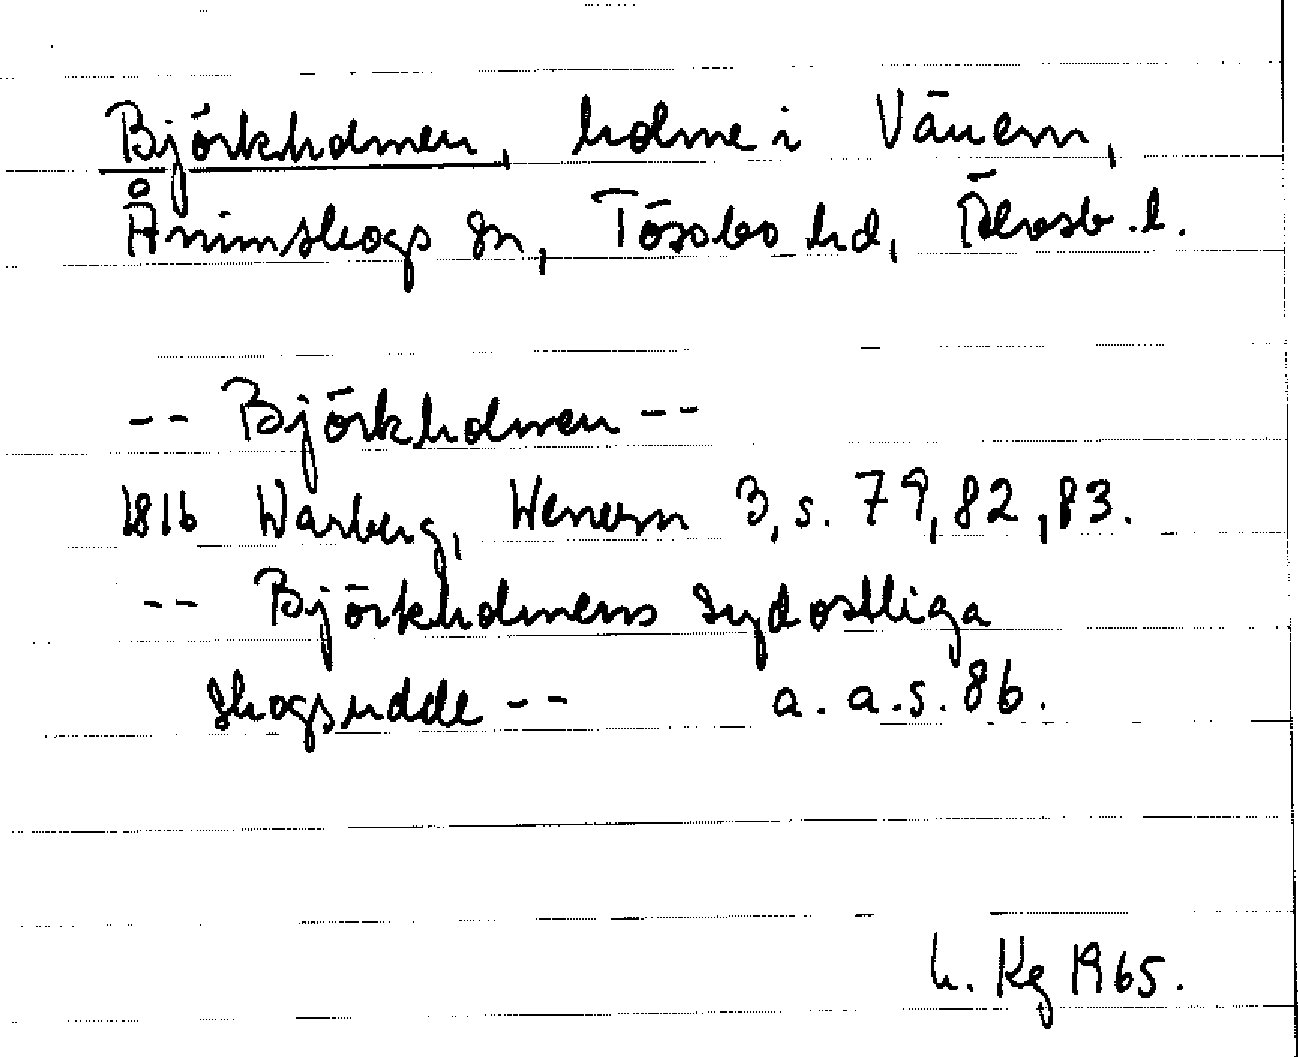 Björkholmen, holme i Vänern,
Ånimskogs sn, Tössbo hd, Älvsb. l.
-- Björkholmen --
1816 Warberg, Wenern 3, s. 79, 82, 83.
-- Björkholmens sydostliga
skogsudde -- a. a. s. 86.
h. Kg 1965.